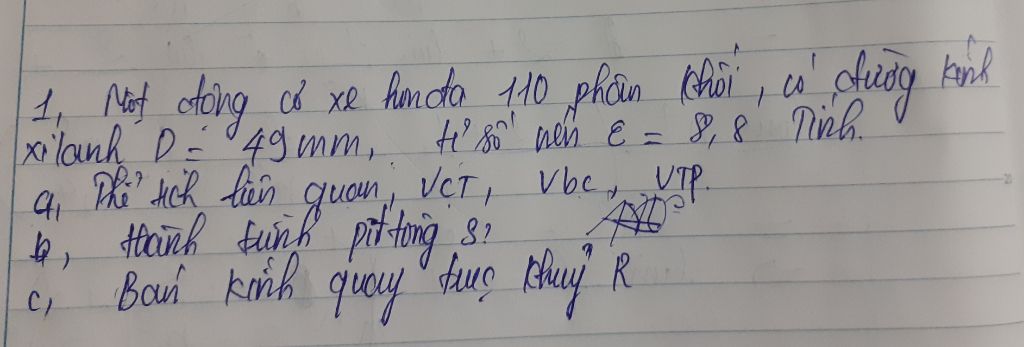 1, Một động cơ xe honda 110 phân khối, có đường kính
xi lanh D = 49mm, Hệ số nén ε = 8,8 Tính.
a, Thể tích liên quan, VCT, Vbc, VTP.
b, Hành trình pít tông S?
c, Bán kính quay trục khuỷu R